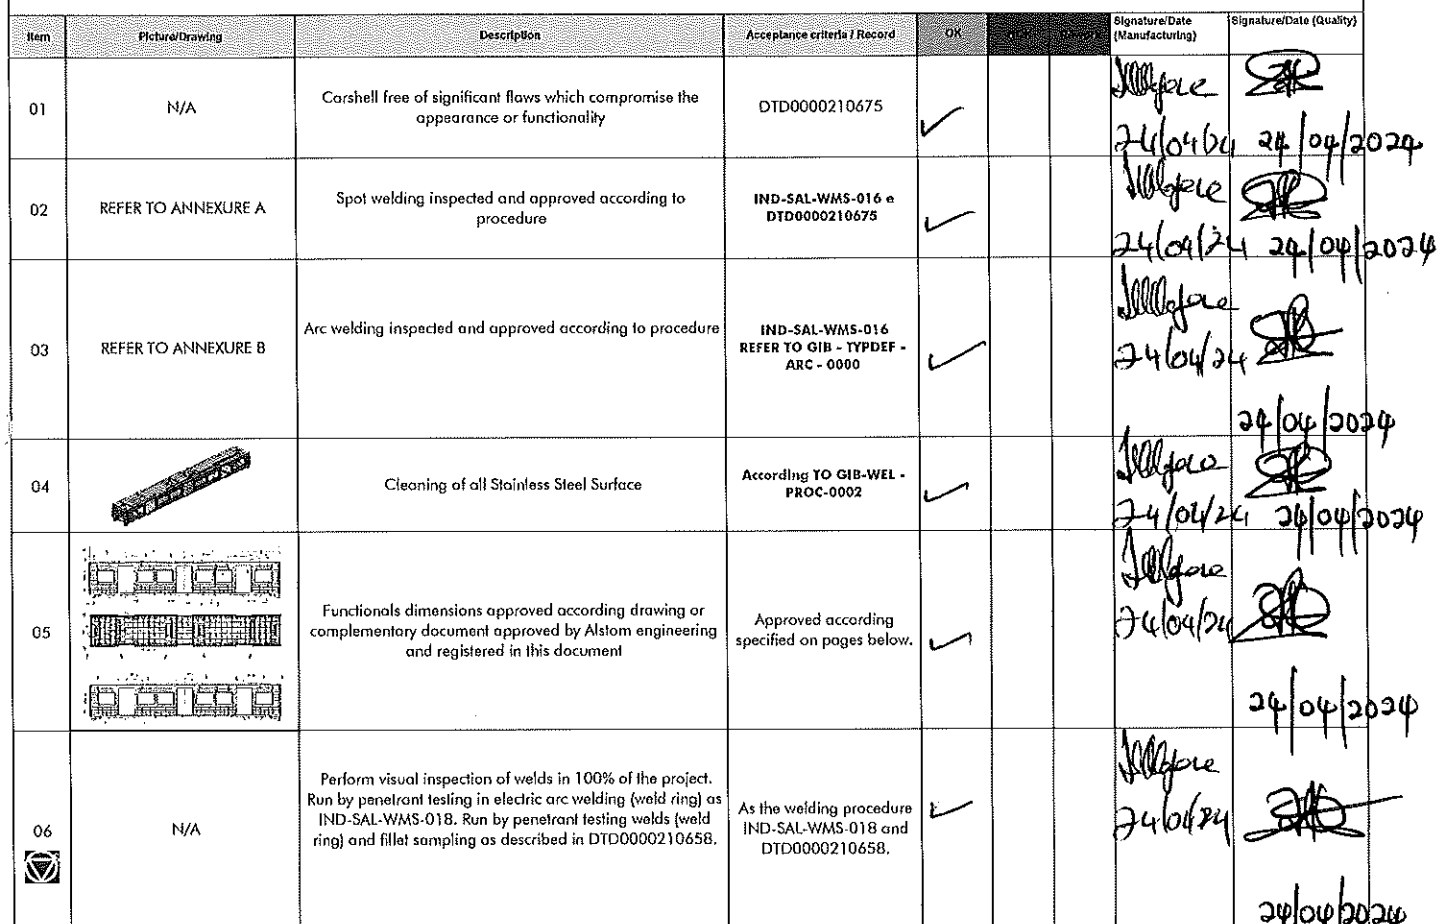 Item
Picture/Drawing
Description
Acceptance criteria / Record
OK
Signature/Date
(Manufacturing)
Signature/Date (Quality)
01
N/A
Carshell free of significant flaws which compromise the
appearance or functionality
DTD0000210675
24/04/24
24/04/2024
02
REFER TO ANNEXURE A
Spot welding inspected and approved according to
procedure
IND-SAL-WMS-016 e
DTD0000210675
24/04/24
24/04/2024
03
REFER TO ANNEXURE B
Arc welding inspected and approved according to procedure
IND-SAL-WMS-016
REFER TO GIB - TYPDEF -
ARC - 0000
24/04/24
24/04/2024
04
Cleaning of all Stainless Steel Surface
According TO GIB-WEL -
PROC-0002
24/04/24
24/04/2024
05
Functionals dimensions approved according drawing or
complementary document approved by Alstom engineering
and registered in this document
Approved according
specified on pages below.
24/04/24
24/04/2024
06
N/A
Perform visual inspection of welds in 100% of the project.
Run by penetrant testing in electric arc welding (weld ring) as
IND-SAL-WMS-018. Run by penetrant testing welds (weld
ring) and fillet sampling as described in DTD0000210658.
As the welding procedure
IND-SAL-WMS-018 and
DTD0000210658.
24/04/24
24/04/2024